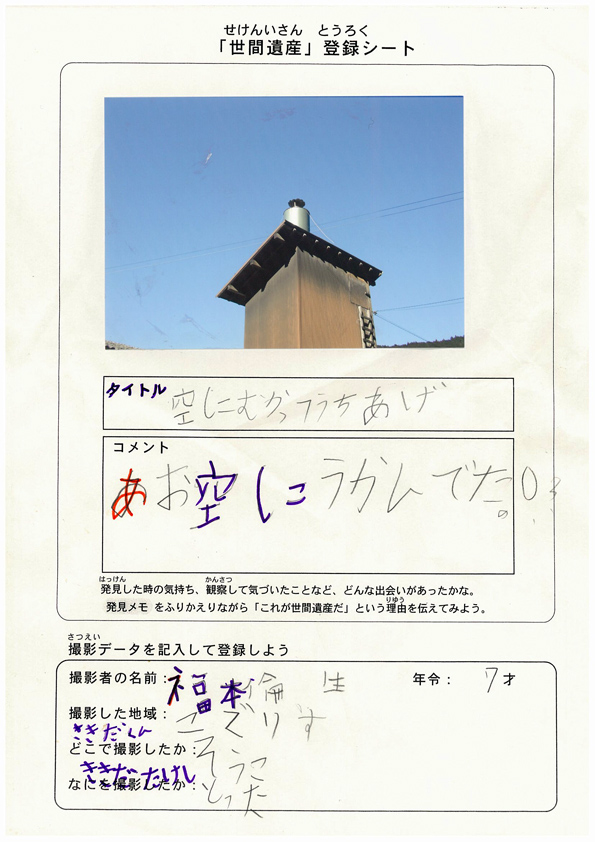 せけんいさん とうろく
「世間遺産」登録シート
タイトル
空にむかってうちあげ
コメント
あお空にうかんでた。
はっけん かんさつ
発見した時の気持ち、観察して気づいたことなど、どんな出会いがあったかな。
りゆう
発見メモ をふりかえりながら「これが世間遺産だ」という理由を伝えてみよう。
さつえい
撮影データを記入して登録しよう
撮影者の名前：福本倫生 年令： 7才
撮影した地域：こでりす
ききだくん
どこで撮影したか：そうこ
ききだたけし
なにを撮影したか：とった